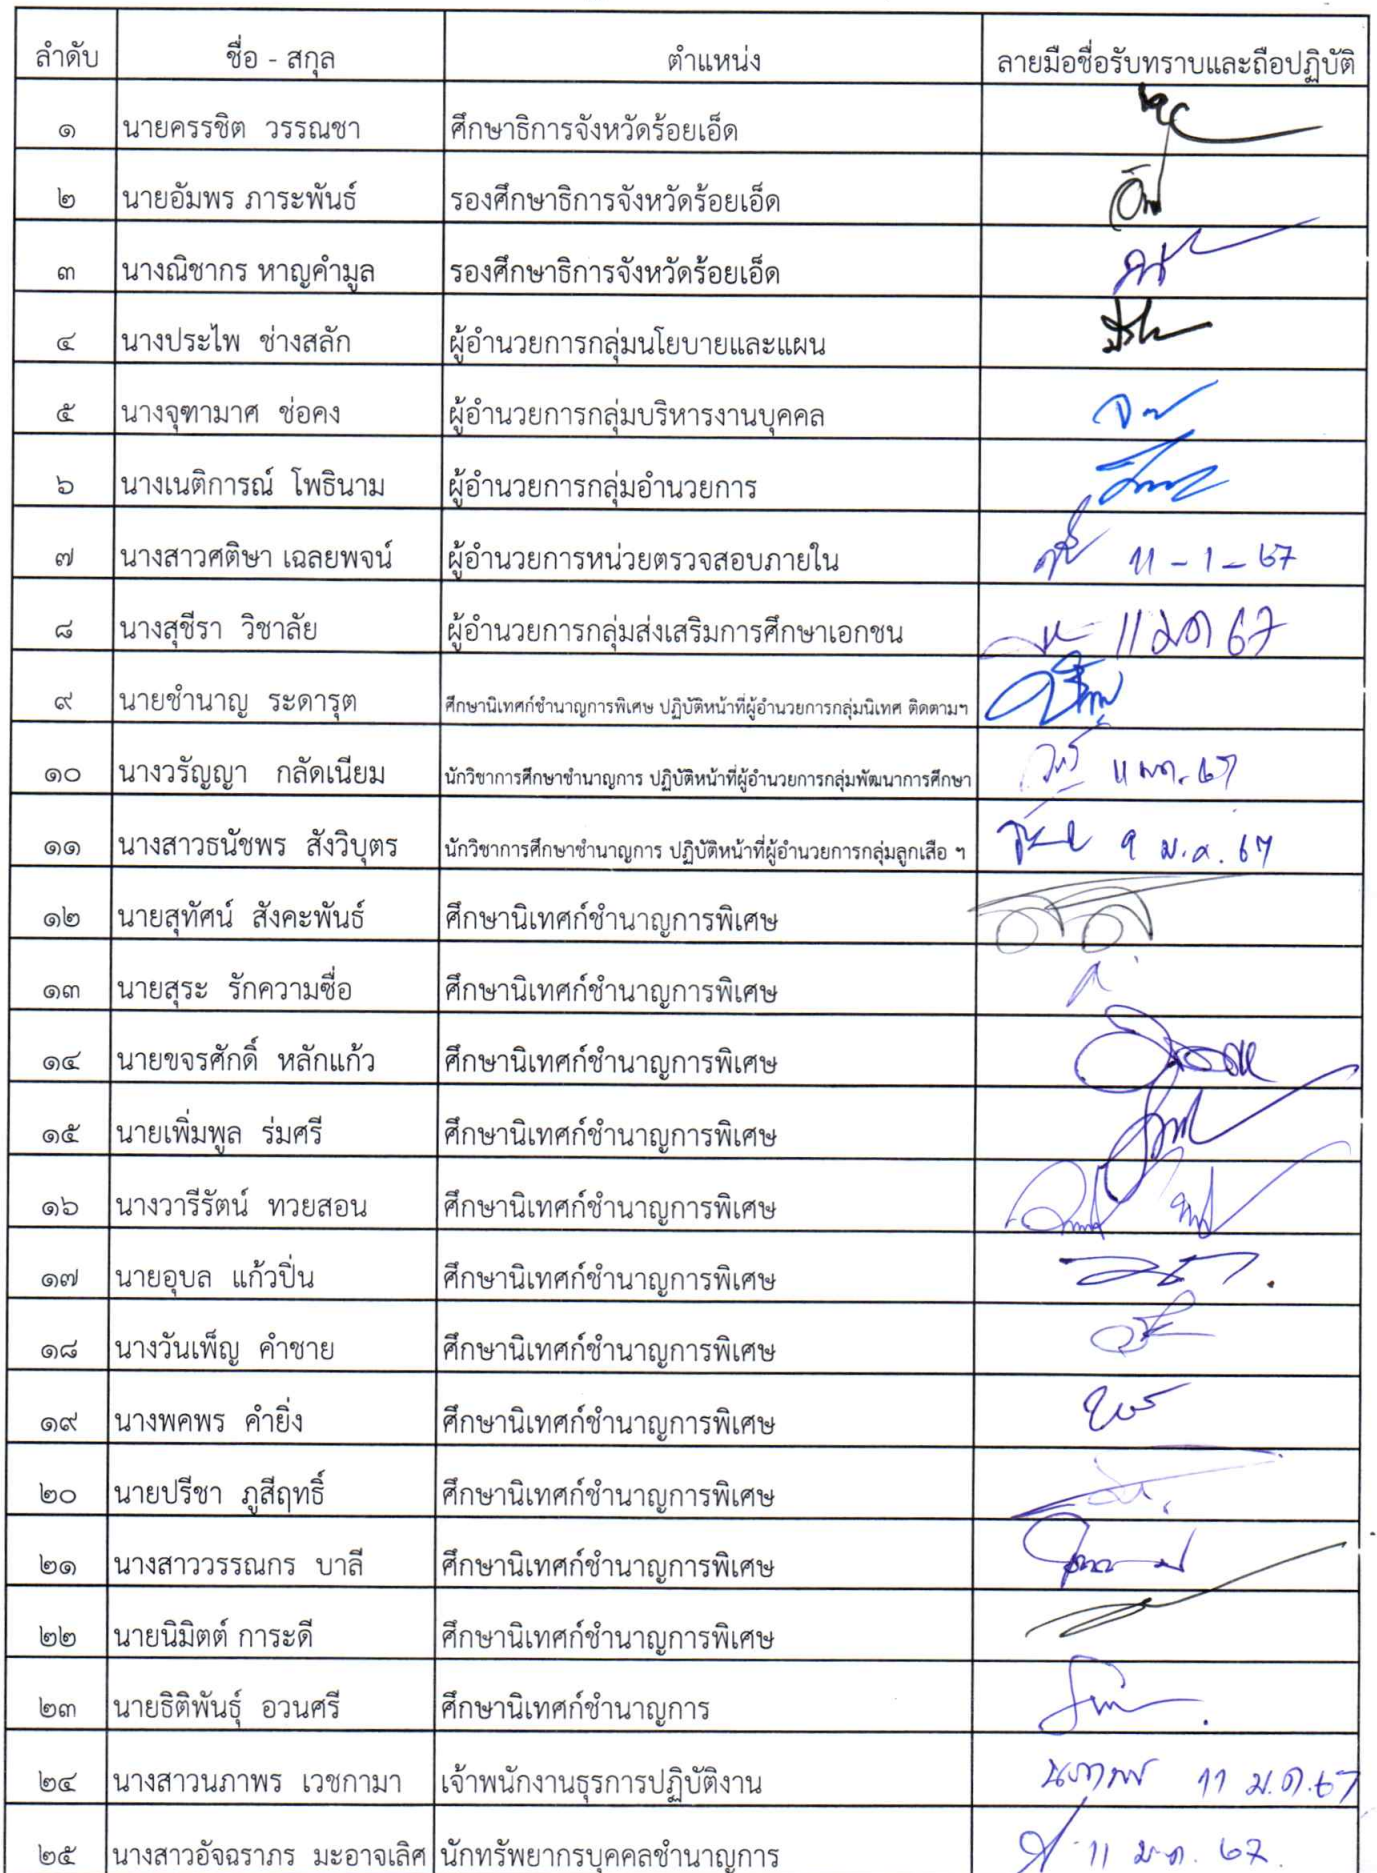 ลำดับ ชื่อ - สกุล ตำแหน่ง ลายมือชื่อรับทราบและถือปฏิบัติ
๑ นายครรชิต วรรณชา ศึกษาธิการจังหวัดร้อยเอ็ด
๒ นายอัมพร ภาระพันธ์ รองศึกษาธิการจังหวัดร้อยเอ็ด
๓ นางณิชากร หาญคำมูล รองศึกษาธิการจังหวัดร้อยเอ็ด
๔ นางประไพ ช่างสลัก ผู้อำนวยการกลุ่มนโยบายและแผน
๕ นางจุฑามาศ ช่อคง ผู้อำนวยการกลุ่มบริหารงานบุคคล
๖ นางเนติการณ์ โพธินาม ผู้อำนวยการกลุ่มอำนวยการ
๗ นางสาวศติษา เฉลยพจน์ ผู้อำนวยการหน่วยตรวจสอบภายใน 11 - 1 - 67
๘ นางสุชีรา วิชาลัย ผู้อำนวยการกลุ่มส่งเสริมการศึกษาเอกชน 11 มค 67
๙ นายชำนาญ ระดารุต ศึกษานิเทศก์ชำนาญการพิเศษ ปฏิบัติหน้าที่ผู้อำนวยการกลุ่มนิเทศ ติดตามฯ
๑๐ นางวรัญญา กลัดเนียม นักวิชาการศึกษาชำนาญการ ปฏิบัติหน้าที่ผู้อำนวยการกลุ่มพัฒนาการศึกษา 11 มค. 67
๑๑ นางสาวธนัชพร สังวิบุตร นักวิชาการศึกษาชำนาญการ ปฏิบัติหน้าที่ผู้อำนวยการกลุ่มลูกเสือ ฯ 9 ม.ค. 67
๑๒ นายสุทัศน์ สังคะพันธ์ ศึกษานิเทศก์ชำนาญการพิเศษ
๑๓ นายสุระ รักความซื่อ ศึกษานิเทศก์ชำนาญการพิเศษ
๑๔ นายขจรศักดิ์ หลักแก้ว ศึกษานิเทศก์ชำนาญการพิเศษ
๑๕ นายเพิ่มพูล ร่มศรี ศึกษานิเทศก์ชำนาญการพิเศษ
๑๖ นางวารีรัตน์ ทวยสอน ศึกษานิเทศก์ชำนาญการพิเศษ
๑๗ นายอุบล แก้วปิ่น ศึกษานิเทศก์ชำนาญการพิเศษ
๑๘ นางวันเพ็ญ คำชาย ศึกษานิเทศก์ชำนาญการพิเศษ
๑๙ นางพคพร คำยิ่ง ศึกษานิเทศก์ชำนาญการพิเศษ
๒๐ นายปรีชา ภูสีฤทธิ์ ศึกษานิเทศก์ชำนาญการพิเศษ
๒๑ นางสาววรรณกร บาลี ศึกษานิเทศก์ชำนาญการพิเศษ
๒๒ นายนิมิตต์ การะดี ศึกษานิเทศก์ชำนาญการพิเศษ
๒๓ นายธิติพันธุ์ อวนศรี ศึกษานิเทศก์ชำนาญการ
๒๔ นางสาวนภาพร เวชกามา เจ้าพนักงานธุรการปฏิบัติงาน นภาพร 11 ม.ค.67
๒๕ นางสาวอัจฉราภร มะอาจเลิศ นักทรัพยากรบุคคลชำนาญการ 11 ม.ค. 67